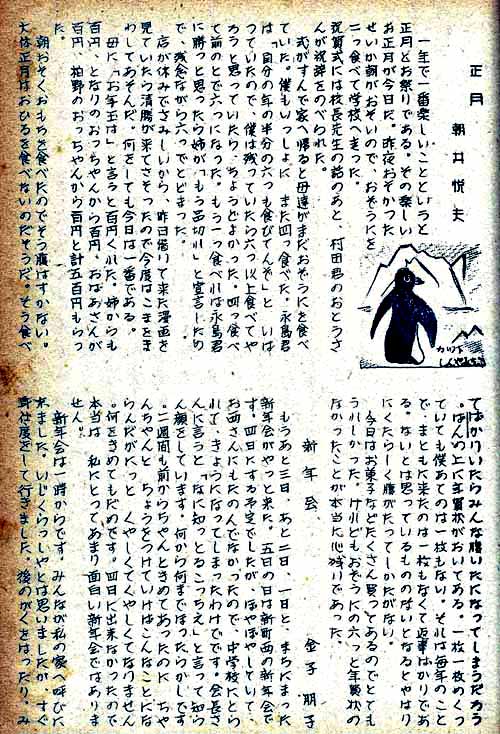 正月
朝井悦夫
一年で一番楽しいことというと
正月とお祭りである。その楽しい
お正月が今日だ。昨夜おそかった
せいか朝がおそいので、おぞうにを
二つ食べて学校へ走った。
祝賀式には校長先生の話のあと、村田君のおとうさ
んが祝辞をのべられた。
式がすんで家へ帰ると母達がまだおぞうにを食べ
ていた。僕もいっしょに、また四つ食べた。永島君
は「自分の年の半分の六つも食びてんぞ」と、いば
っていたので、僕は残っていたら六つ以上食べてや
ろうと思っていたら、ちょうどよかった。四つ食べ
て前のとで六つになった。もう一つ食べれば永島君
に勝つと思ったら姉が「もう品切れ」と宣言したの
で、残念ながら六つでとどまった。
店が休みでさみしいから、昨日借りて来た漫画を
見ていたら清勝が来てさそったので今度はこまをま
わしてあそんだ。何をしても今日は一番である。
母に「お年玉は」と言うと百円くれた。姉からも
百円、となりのおっちゃんから百円、おばあさんが
百円、柏野のおっちゃんから百円と計五百円もらっ
た。
朝おそくおもちを食べたのでそう腹はすかない。
大体正月はおひるを食べないのだそうだ。そう食べ
カット
しんやともき
てばかりいたらみんな腹いたになってしまうだろう
。ばんの上に年賀状がおいてある。一枚一枚めくっ
ていても僕あてのは一枚もない。それは毎年のこと
で、まともに来たのは一枚もなくて返事ばかりであ
る。ないとは思っているもののないとなるとやはり
にくたらしく腹がたってしかたがない。
今日はお菓子などたくさん買ってあるのでとても
うれしかった。けれどもおぞうにの六つと年賀状の
なかったことが本当に心残りであった。
新年会
金子朋子
もうあと三日、あと二日、一日と、まちにまった
新年会がやっと来た。五日の日は新町西の新年会で
す。四日にする予定でしたが、ぼやぼやしていて、
お西さんにもたのんでなかったので、中学校にとら
れて、きょうになってしまったわけです。会長さ
んに言うと「なに知っとるこっちぇ」と言って知ら
ん顔をしています。何から何までほったらかしです
。二週間も前からちゃんときめてあったのに、ちゃ
んちゃんと、ちょうをつけていけばこんなことにな
らんだがだにと、くやしくてくやしくてなりません
。何をきめてもだめです。四日に出来なかったので
本当は、私にとってあまり面白い新年会ではありま
せん。
新年会は一時からです。みんなが私の家へ呼びに
来ました。いじくらっしやとは思いましたが、すぐ